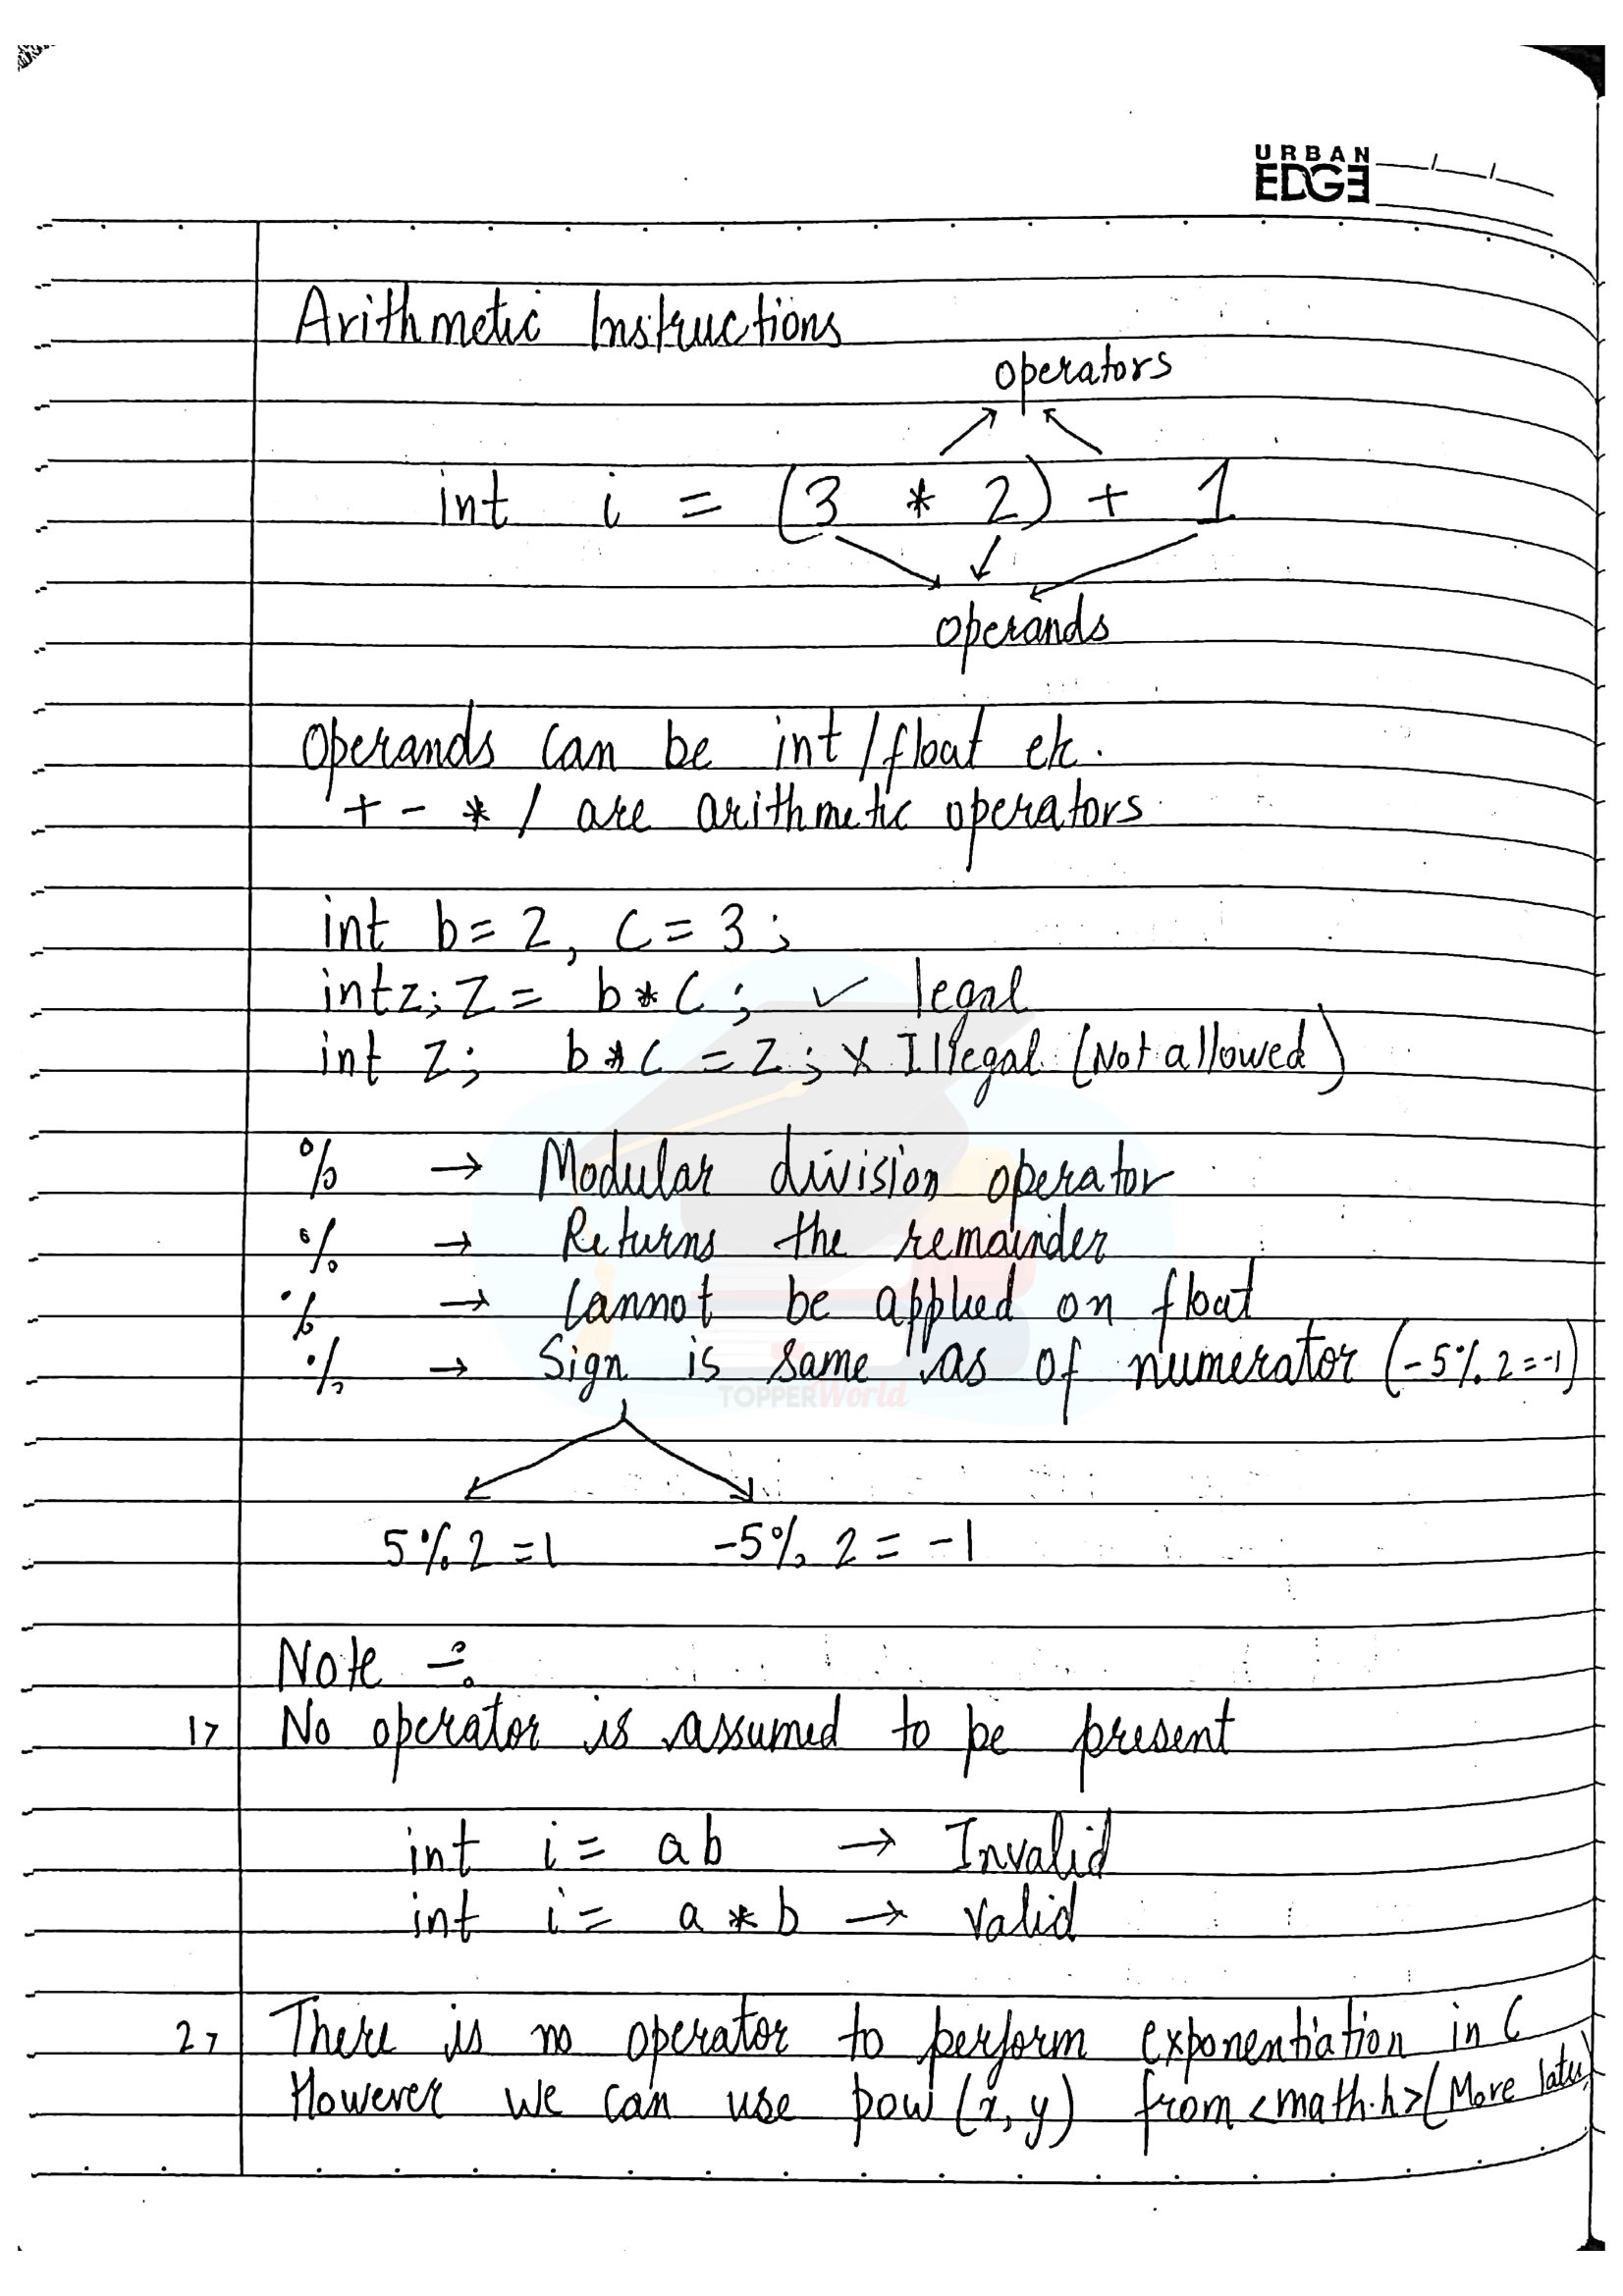 URBAN
EDGE
Arithmetic Instructions
operators
int i = (3 * 2) + 1
operands
Operands can be int/float etc.
+ - * / are arithmetic operators
int b = 2, c = 3;
int z; z = b*c; ✓ legal
int z; b*c = z; X Illegal (Not allowed)
% → Modular division operator
% → Returns the remainder
% → Cannot be applied on float
% → Sign is same as of numerator (-5% 2 = -1)
TOPPERWorld
5%2 = 1 -5% 2 = -1
Note :-
1> No operator is assumed to be present
int i = ab → Invalid
int i = a * b → Valid
2> There is no operator to perform exponentiation in C
However we can use pow (x, y) from <math.h> (More later)